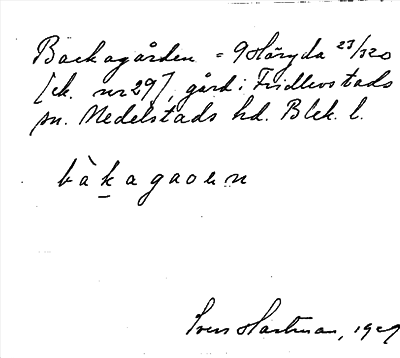 Backagården = 9 Häryda 23/320
[ek. nr 29], gård i Fridlevstads
sn. Medelstads hd. Blek. l.
bàkagaoen
Sven Hartman, 19